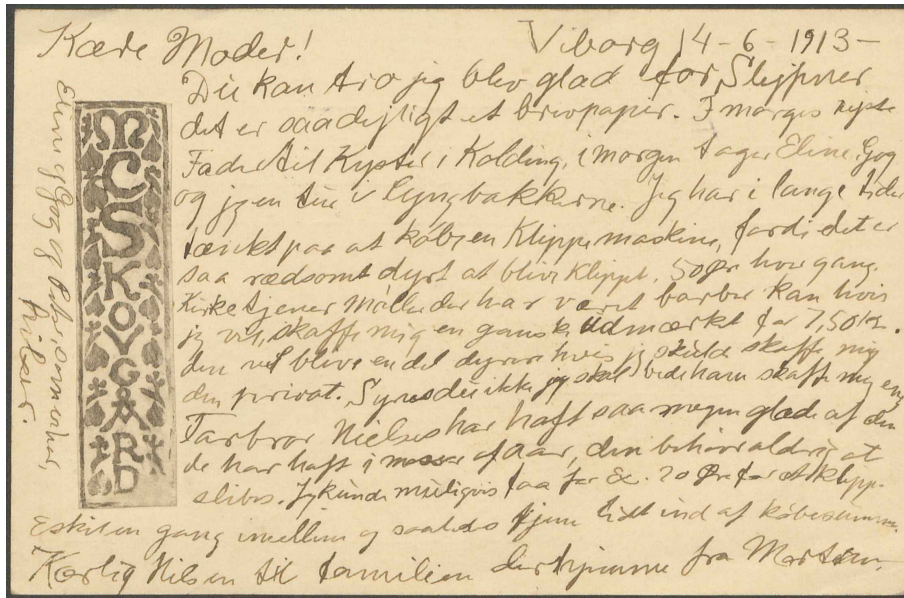 Kære Moder! Viborg 14-6-1913-
Du kan tro jeg blev glad for Slejpner
det er saa dejligt et brevpapir. I morges rejste
Fader til Kyster i Kolding, i morgen tager Eline, Gog
og jeg en tur i Lyngbakkerne. Jeg har i lange tider
tænkt paa at købe en Klippemaskine, fordi det er
saa rædsomt dyrt at blive klippet, 50 Øre hver gang.
Kirketjener Møller der har været barber kan hvis
jeg vil, skaffe mig en ganske udmærket for 7,50 Kr.
den vil blive en del dyrere hvis jeg skulde skaffe mig
den privat. Synes du ikke jeg skal bede ham skaffe mig en,
Farbror Nielses har haft saa megen glæde af den
de har haft i masser af aar, den behøver aldrig at
slibes. Jeg kunde muligvis faa for Ex. 20 Øre for at klippe
Eskil en gang imellem og saaledes tjene lidt ind af købesummen.
Kærlig Hilsen til familien derhjemme fra Morten.
Eline og Gog og
hilser.
MCSKOVGÅRD